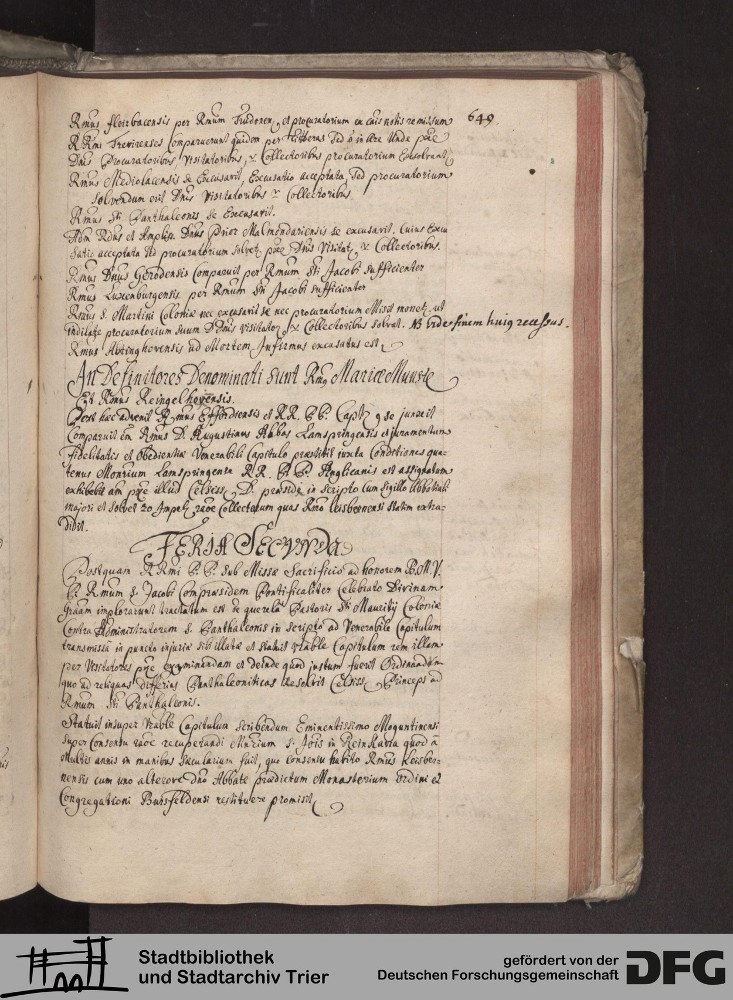 649
Rmus fleirbacensis per Rmum Trudonen, et procuratorium ex eius notis remissum
R Rmi Trevirenses Comparuerunt quidem per litteras sed ô in lræ Unde pñt
Dnis Procuratoribus, Visitatoribus, & Collectoribus procuratorium exsolvant,
Rmus Mediolacensis se Excusavit, Excusatio acceptata, sed procuratorium
solvendum erit Dnis Visitatoribus & Collectoribus
Rmus Sti Panthaleonis se Excusavit.
Adm Rdus et Ampliss. Dnus Prior Malmondariensis se excusavit, cuius Excu
satio acceptata sed procuratorium solvet, pñt Dnis Visitat & Collectoribus.
Rmus Dnus Gerodensis Comparuit per Rmum Sti Jacobi sufficienter
Rmus Luxenburgensis per Rmum Sti Jacobi sufficienter
Rmus S. Martini Coloniæ nec excusavit se nec procuratorium Misit monet, ut
indilatè procuratorium suum Dnis visitator, & Collectoribus solvat. NB vide finem huius recessus.
Rmus Abtinghovensis ad Mortem Infirmus excusatus est
In Definitores Denominati sunt Rmus Mariæ Munste
Et Rmus Reingelhovensis.
Post hæc advenit Rmus Effordtensis et RR. PP. Capto se junxit
Comparuit etiam Rmus D. Augustinus Abbas Lamspringensis et juramentum
fidelitatis et Obedientiæ Venerabili Capitulo præstitit iuxta Conditiones qua-
tenus Monrium Lamspringense RR. PP. Anglicanis est assignatum
exhibebit am pñt illud Celsiss. D. præsidi in scripto cum sigillo Abbatiali
majori et solvet 20 Impales raoe Collectarum quas Rmo leisbornensi statim extra-
didit.
FERIA SECUNDA
Postquam RRmi PP. sub Missæ Sacrificio ad honorem B.M.V.
P. Rmum S. Jacobi Compræsidem Pontificaliter Celebrato Divinam
gratiam implorarunt tractatum est de querela Pastoris Sti Mauritij Coloniæ
Contra Administratorem S. Panthaleonis in scripto ad Venerabile Capitulum
transmissa in puncto injuriæ sibi illatæ et statuit vrable Capitulum rem illam
per Visitatores pñt examinandam et deinde quod justum fuerit Ordinandum
quo ad reliquas differias Panthaleoniticas Resolvit Celsiss. Princeps ad
Rmum Sti Panthaleonis.
Statuit insuper Vrable Capitulum scribendum Eminentissimo Moguntinensi
super Consensu raoe recuperandi Mnrium S. Jois in ReinKavia quod â
Multis annis in manibus sæcularium fuit, quo consensu habito Rmus Leisbor-
nensis cum uno alterove dno Abbate prædictum Monasterium ordini et
Congregationi Bursfeldensi restituere promisit
Stadtbibliothek
und Stadtarchiv Trier
gefördert von der
Deutschen Forschungsgemeinschaft
DFG